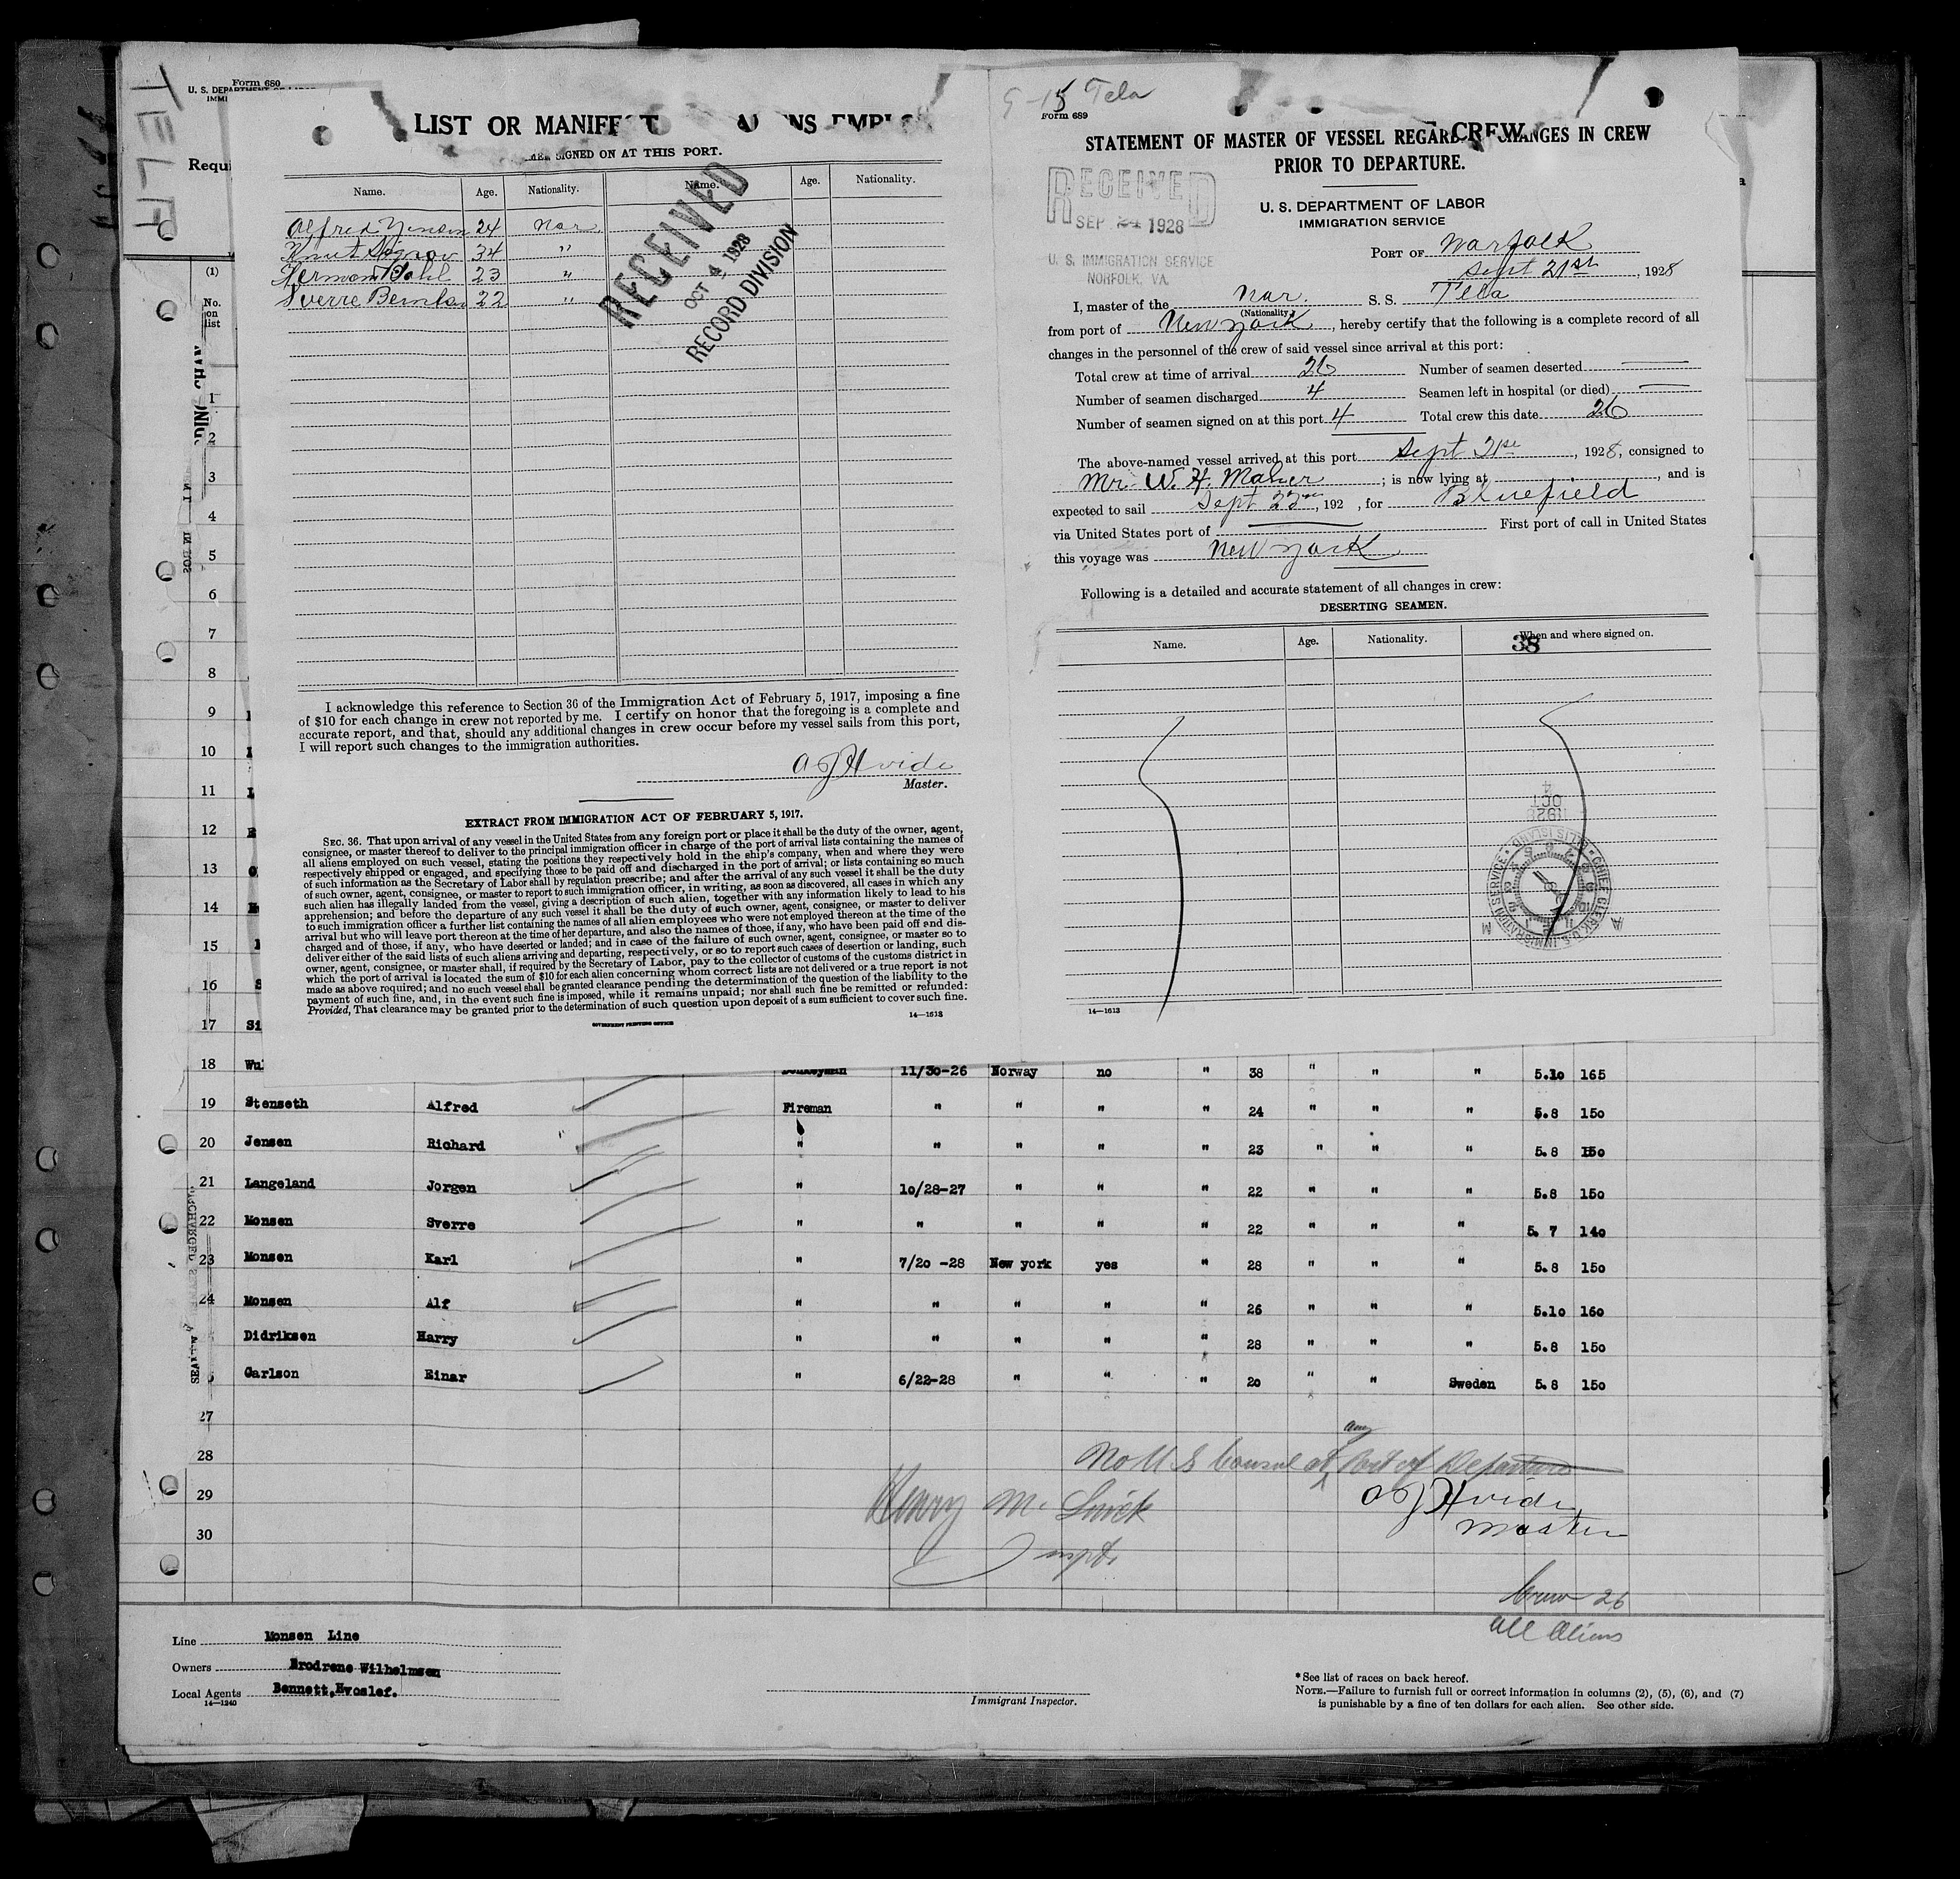 TELA
Form 680
U. S. DEPARTMENT OF LABOR
IMMI
Requi
LIST OR MANIFEST
SIGNED ON AT THIS PORT.
Name. Age. Nationality. Name. Age. Nationality.
Alfred 24 Nor
Knut 34 "
Herman Dahl 23 "
Sverre 22 "
RECEIVED
OCT 4 1928
RECORD DIVISION
I acknowledge this reference to Section 36 of the Immigration Act of February 5, 1917, imposing a fine
of $10 for each change in crew not reported by me. I certify on honor that the foregoing is a complete and
accurate report, and that, should any additional changes in crew occur before my vessel sails from this port,
I will report such changes to the immigration authorities.
O J Hvide
Master.
EXTRACT FROM IMMIGRATION ACT OF FEBRUARY 5, 1917.
SEC. 36. That upon arrival of any vessel in the United States from any foreign port or place it shall be the duty of the owner, agent,
consignee, or master thereof to deliver to the principal immigration officer in charge of the port of arrival lists containing the names of
all aliens employed on such vessel, stating the positions they respectively hold in the ship's company, when and where they were
respectively shipped or engaged, and specifying those to be paid off and discharged in the port of arrival; or lists containing so much
of such information as the Secretary of Labor shall by regulation prescribe; and after the arrival of any such vessel it shall be the duty
of such owner, agent, consignee, or master to report to such immigration officer, in writing, as soon as discovered, all cases in which any
such alien has illegally landed from the vessel, giving a description of such alien, together with any information likely to lead to his
apprehension; and before the departure of any such vessel it shall be the duty of such owner, agent, consignee, or master to deliver
to such immigration officer a further list containing the names of all alien employees who were not employed thereon at the time of the
arrival but who will leave port thereon at the time of her departure, and also the names of those, if any, who have been paid off and dis-
charged and of those, if any, who have deserted or landed; and in case of the failure of such owner, agent, consignee, or master so to
deliver either of the said lists of such aliens arriving and departing, respectively, or so to report such cases of desertion or landing, such
owner, agent, consignee, or master shall, if required by the Secretary of Labor, pay to the collector of customs of the customs district in
which the port of arrival is located the sum of $10 for each alien concerning whom correct lists are not delivered or a true report is not
made as above required; and no such vessel shall be granted clearance pending the determination of the question of the liability to the
payment of such fine, and, in the event such fine is imposed, while it remains unpaid; nor shall such fine be remitted or refunded:
Provided, That clearance may be granted prior to the determination of such question upon deposit of a sum sufficient to cover such fine.
GOVERNMENT PRINTING OFFICE 14—1613
9-15 Tela
Form 689
STATEMENT OF MASTER OF VESSEL REGARDING CHANGES IN CREW
CREW
PRIOR TO DEPARTURE.
RECEIVED
SEP 24 1928
U. S. IMMIGRATION SERVICE
NORFOLK, VA.
U. S. DEPARTMENT OF LABOR
IMMIGRATION SERVICE
PORT OF Norfolk
Sept 21st, 1928
I, master of the Nor. S. S. Tela
(Nationality)
from port of New York, hereby certify that the following is a complete record of all
changes in the personnel of the crew of said vessel since arrival at this port:
Total crew at time of arrival 26 Number of seamen deserted
Number of seamen discharged 4 Seamen left in hospital (or died)
Number of seamen signed on at this port 4 Total crew this date 26
The above-named vessel arrived at this port Sept 21st, 1928, consigned to
Mr. W. H. Maher; is now lying at , and is
expected to sail Sept 22nd, 192 , for Bluefield
via United States port of First port of call in United States
this voyage was New York
Following is a detailed and accurate statement of all changes in crew:
DESERTING SEAMEN.
Name. Age. Nationality. When and where signed on.
38
OCT 4
1928
CHIEF CLERK U.S. IMMIGRATION SERVICE ELLIS ISLAND
14—1613
(1)
No. on list
1
2
3
4
5
6
7
8
9
10
11
12
13
14
15
16
17 Si
18 Wu 11/30-26 Norway no " 38 " " " 5.10 165
19 Stenseth Alfred Fireman " " " " 24 " " " 5.8 150
20 Jensen Richard " " " " " 23 " " " 5.8 150
21 Langeland Jorgen " 10/28-27 " " " 22 " " " 5.8 150
22 Monsen Sverre " " " " " 22 " " " 5. 7 140
23 Monsen Karl " 7/20 -28 New york yes " 28 " " " 5.8 150
24 Monsen Alf " " " " " 26 " " " 5.10 160
Didriksen Harry " " " " " 28 " " " 5.8 150
Carlson Einar " 6/22-28 " " " 20 " " Sweden 5.8 150
27
28
29
30
any
No U S Consul at Port of Departure
O J Hvide
Master
Henry M.
Inspt.
Crew 26
All Aliens
Line Monsen Line
Owners Brodrene Wilhelmsen
Local Agents Bennett, Hvoslef.
14—1240
Immigrant Inspector.
*See list of races on back hereof.
NOTE.—Failure to furnish full or correct information in columns (2), (5), (6), and (7)
is punishable by a fine of ten dollars for each alien. See other side.